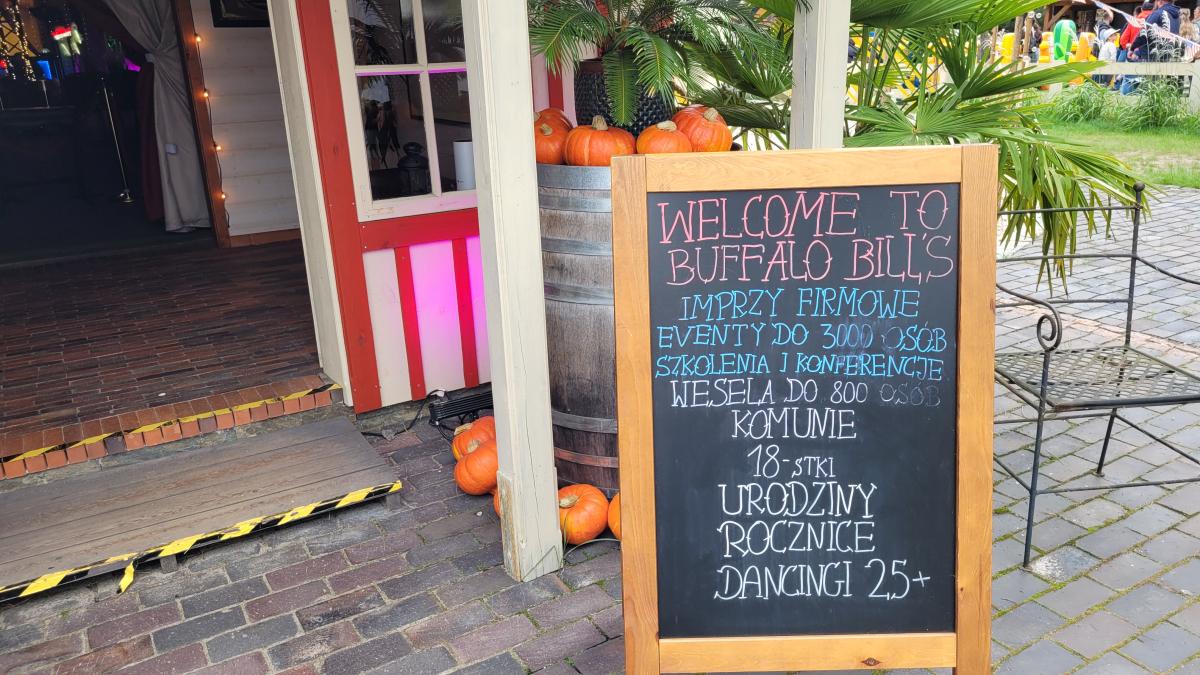 WELCOME TO
BUFFALO BILL'S
IMPRZY FIRMOWE
EVENTY DO 3000 OSÓB
SZKOLENIA I KONFERENCJE
WESELA DO 800 OSÓB
KOMUNIE
18-STKI
URODZINY
ROCZNICE
DANCINGI 25+